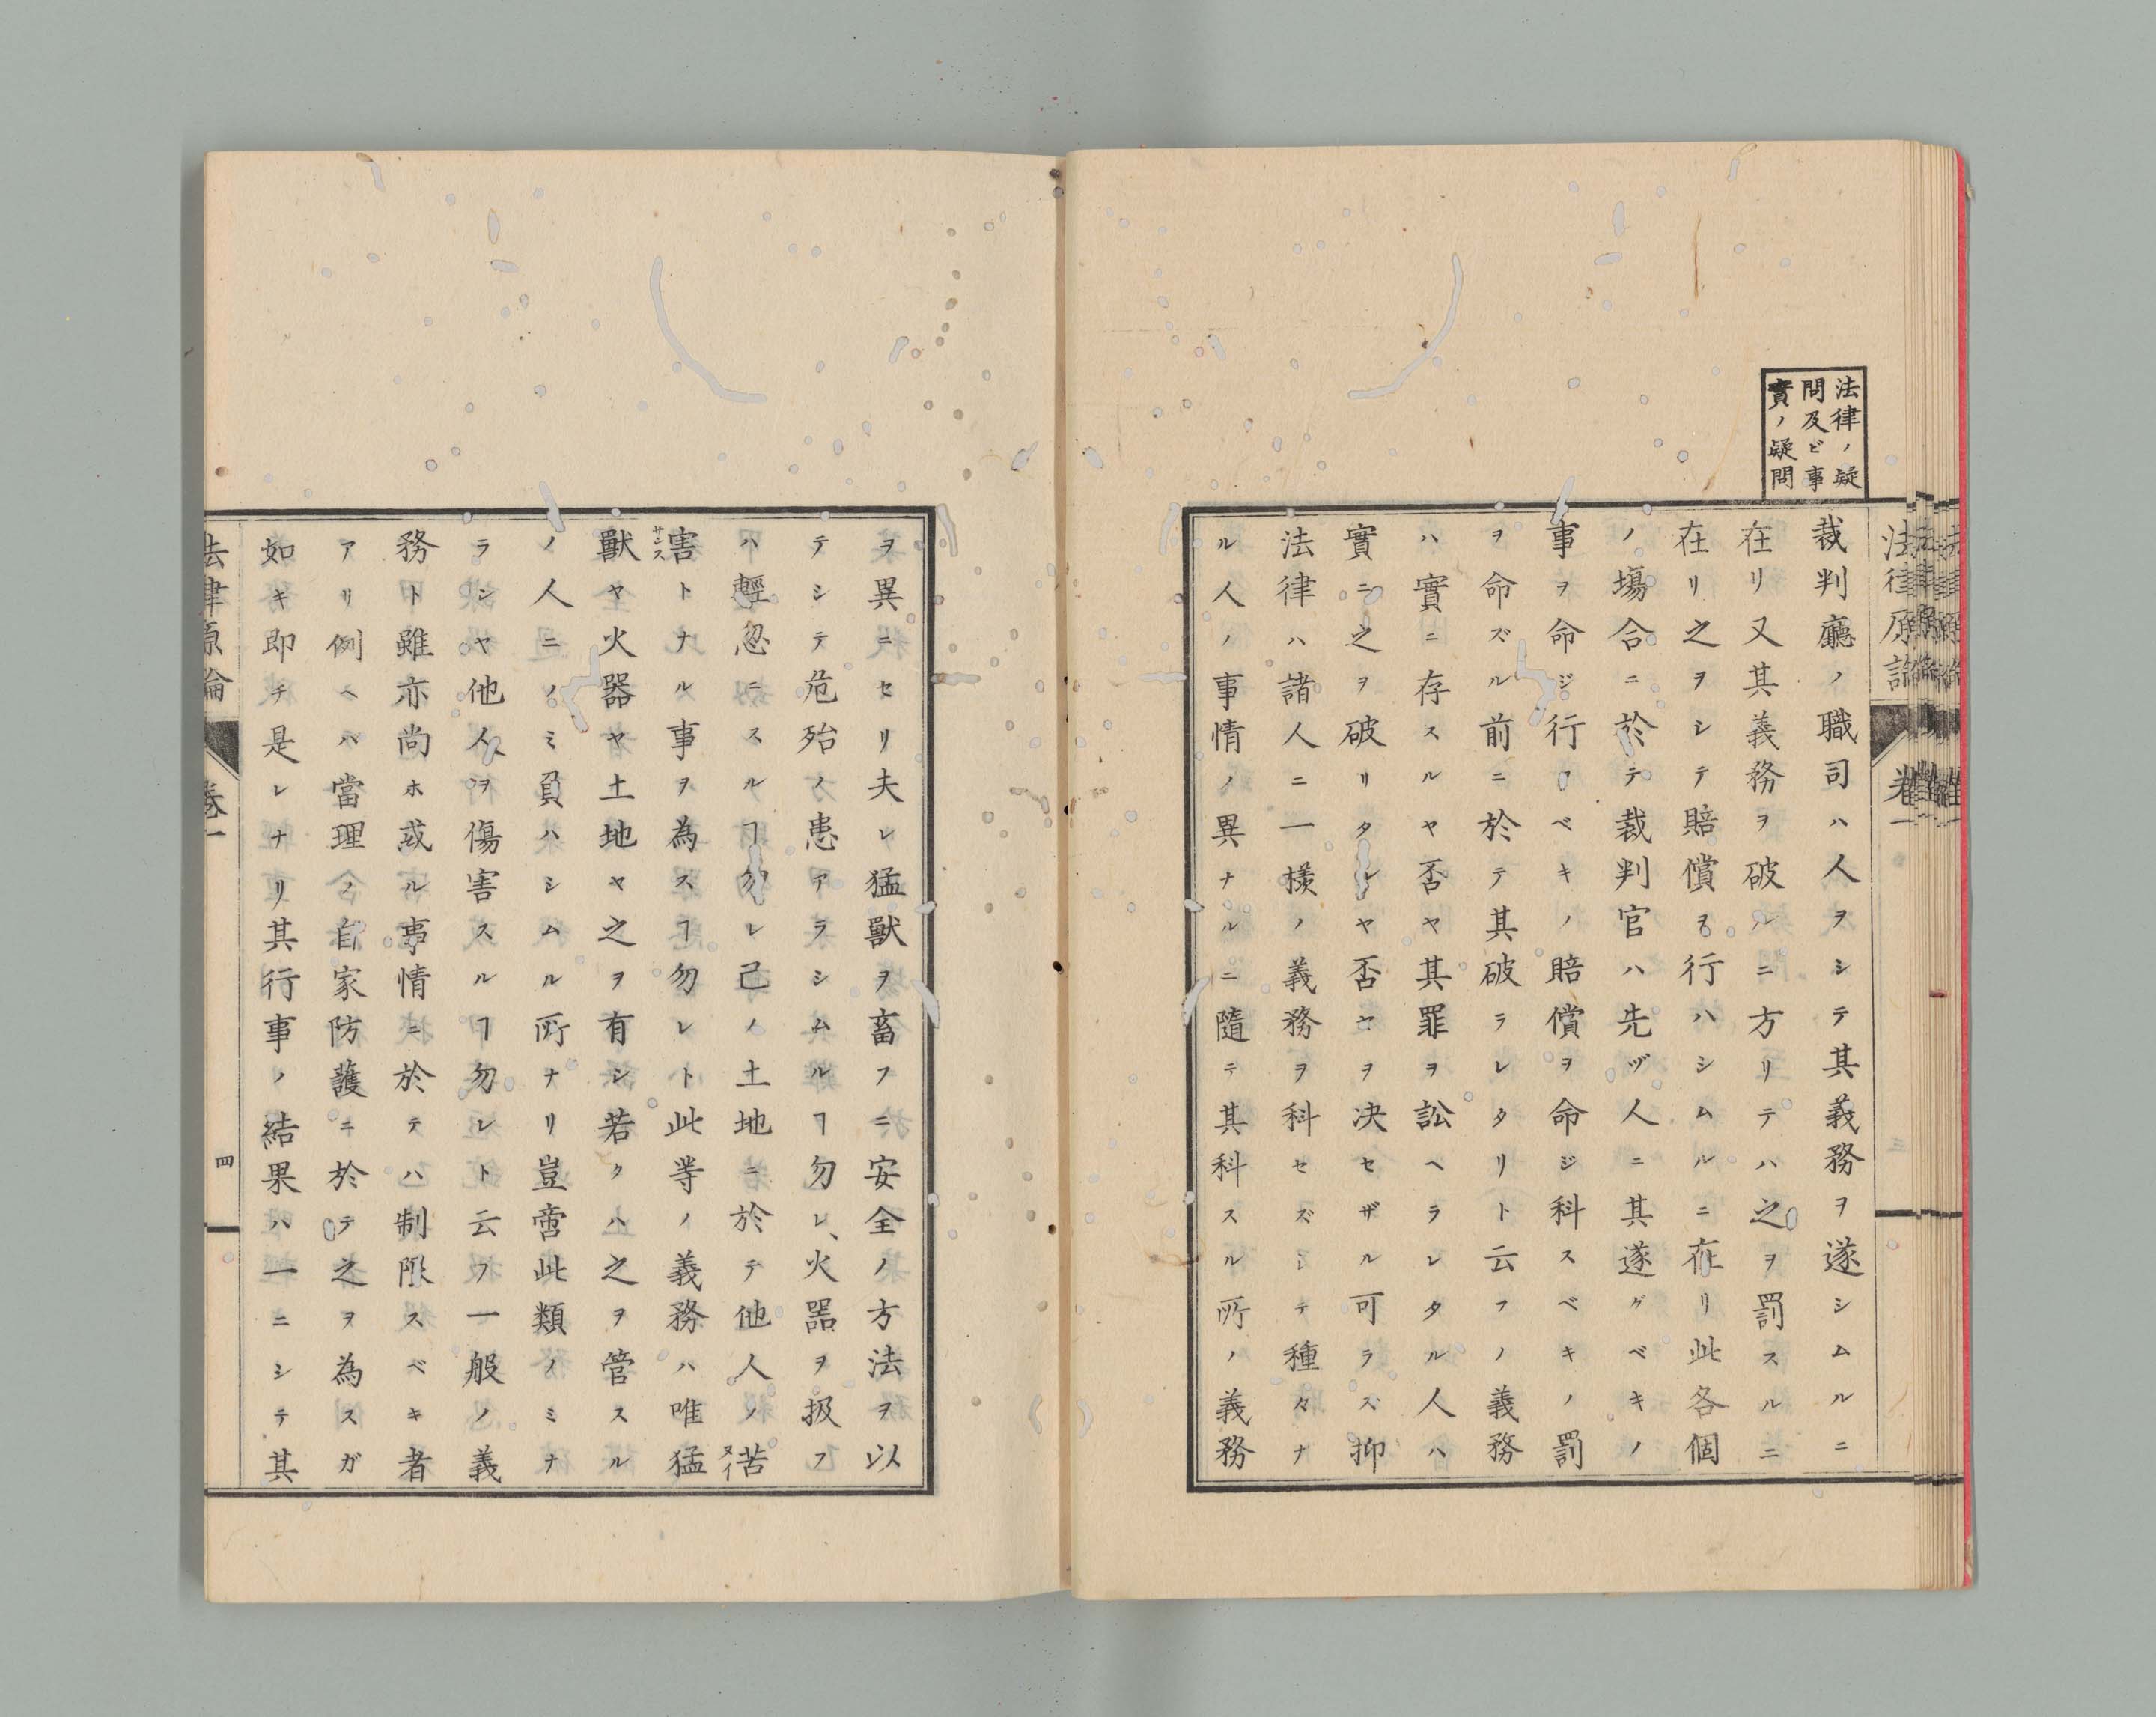 法律ノ疑
問及ビ事
實ノ疑問
裁判廳ノ職司ハ人ヲシテ其義務ヲ遂シムルニ
在リ又其義務ヲ破ルニ方リテハ之ヲ罰スルニ
在リ之ヲシテ賠償ヲ行ハシムルニ在リ此各個
ノ塲合ニ於テ裁判官ハ先ヅ人ニ其遂グベキノ
事ヲ命ジ行フベキノ賠償ヲ命ジ科スベキノ罰
ヲ命ズル前ニ於テ其破ラレタリト云フノ義務
ハ實ニ存スルヤ否ヤ其罪ヲ訟ヘラレタル人ハ
實ニ之ヲ破リタルヤ否ヤヲ决セザル可ラズ抑
法律ハ諸人ニ一樣ノ義務ヲ科セズシテ種々ナ
ル人ノ事情ノ異ナルニ隨テ其科スル所ノ義務
ヲ異ニセリ夫レ猛獸ヲ畜フニ安全ノ方法ヲ以
テシテ危殆ノ患アラシムルヿ勿レ、火器ヲ扱フ
ハ輕忽ニスルヿ勿レ己ノ土地ニ於テ他人ノ苦
害トナル事ヲ為スヿ勿レト此等ノ義務ハ唯猛
獸ヤ火器ヤ土地ヤ之ヲ有シ若クハ之ヲ管スル
ノ人ニノミ負ハシムル所ナリ豈啻此類ノミナ
ランヤ他人ヲ傷害スルヿ勿レト云フ一般ノ義
務ト雖亦尚ホ或ル事情ニ於テハ制限スベキ者
アリ例ヘバ當理ノ自家防護ニ於テ之ヲ為スガ
如キ即チ是レナリ其行事ノ結果ハ一ニシテ其
法律原論
卷一
四